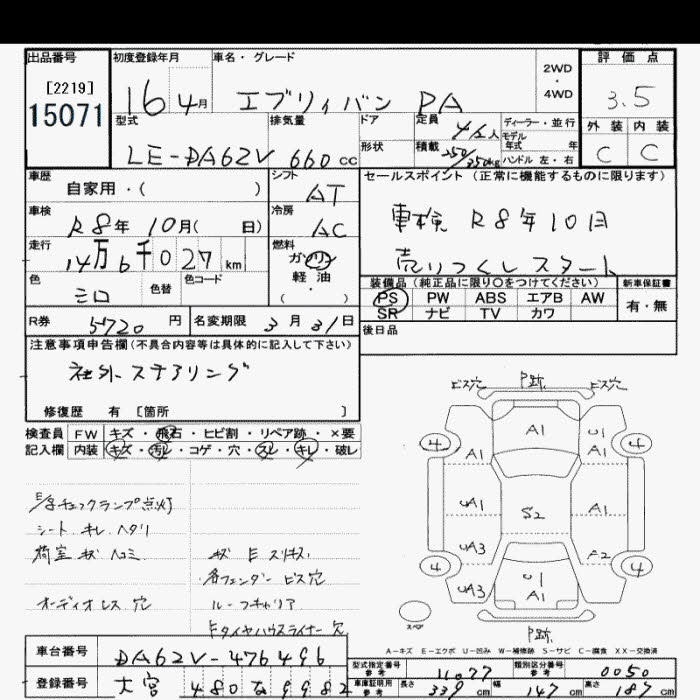 出品番号 初度登録年月 車名・グレード 2WD・4WD 評価点
[2219]
15071 16 4月 エブリィバン PA 3.5
型式 排気量 ドア 定員 4/2人 ディーラー・並行 外装 内装
モデル年式 年
LE-DA62V 660cc 形状 積載 250/350kg ハンドル 左・右 C C
車歴 シフト セールスポイント (正常に機能するものに限ります)
自家用・( ) AT
車検 冷房 車検 R8年10月
R8年 10月( 日) AC
走行 燃料 売りつくしスタート
14万6千027km ガソリン
色 色替 色コード 軽油 装備品(純正品に限り○をつけてください) 新車保証書
シロ ・( ) PS PW ABS エアB AW 有・無
SR ナビ TV カワ
R券 5720円 名変期限 3月31日 後日品
注意事項申告欄(不具合内容等は具体的に記入して下さい)
社外ステアリング
修復歴 有 [箇所 ]
検査員 FW キズ・飛石・ヒビ割・リペア跡・×要
記入欄 内装 キズ・汚レ・コゲ・穴・スレ・キレ・破レ
ビス穴 P跡 ビス穴
4 A1 U1 4
A1 A1
チェックランプ点灯
UA1 S2 A1
シート キレ ヘタリ
荷室 キズ ヘコミ
UA3 A2
各フェンダー ビス穴
4 U1 4
オーディオレス 穴 ルーフキャリア
UA3 A1 A1
タイヤハウスライナー 欠
スペア P跡
A-キズ E-エクボ U-凹み W-補修跡 S-サビ C-腐食 XX-交換済
車台番号 DA62V-476496 型式指定番号 参考 11077 類別区分番号 参考 0050
登録番号 大宮 480 な 9982 車庫証明用 参考 長さ 339cm 幅 147cm 高さ 187cm